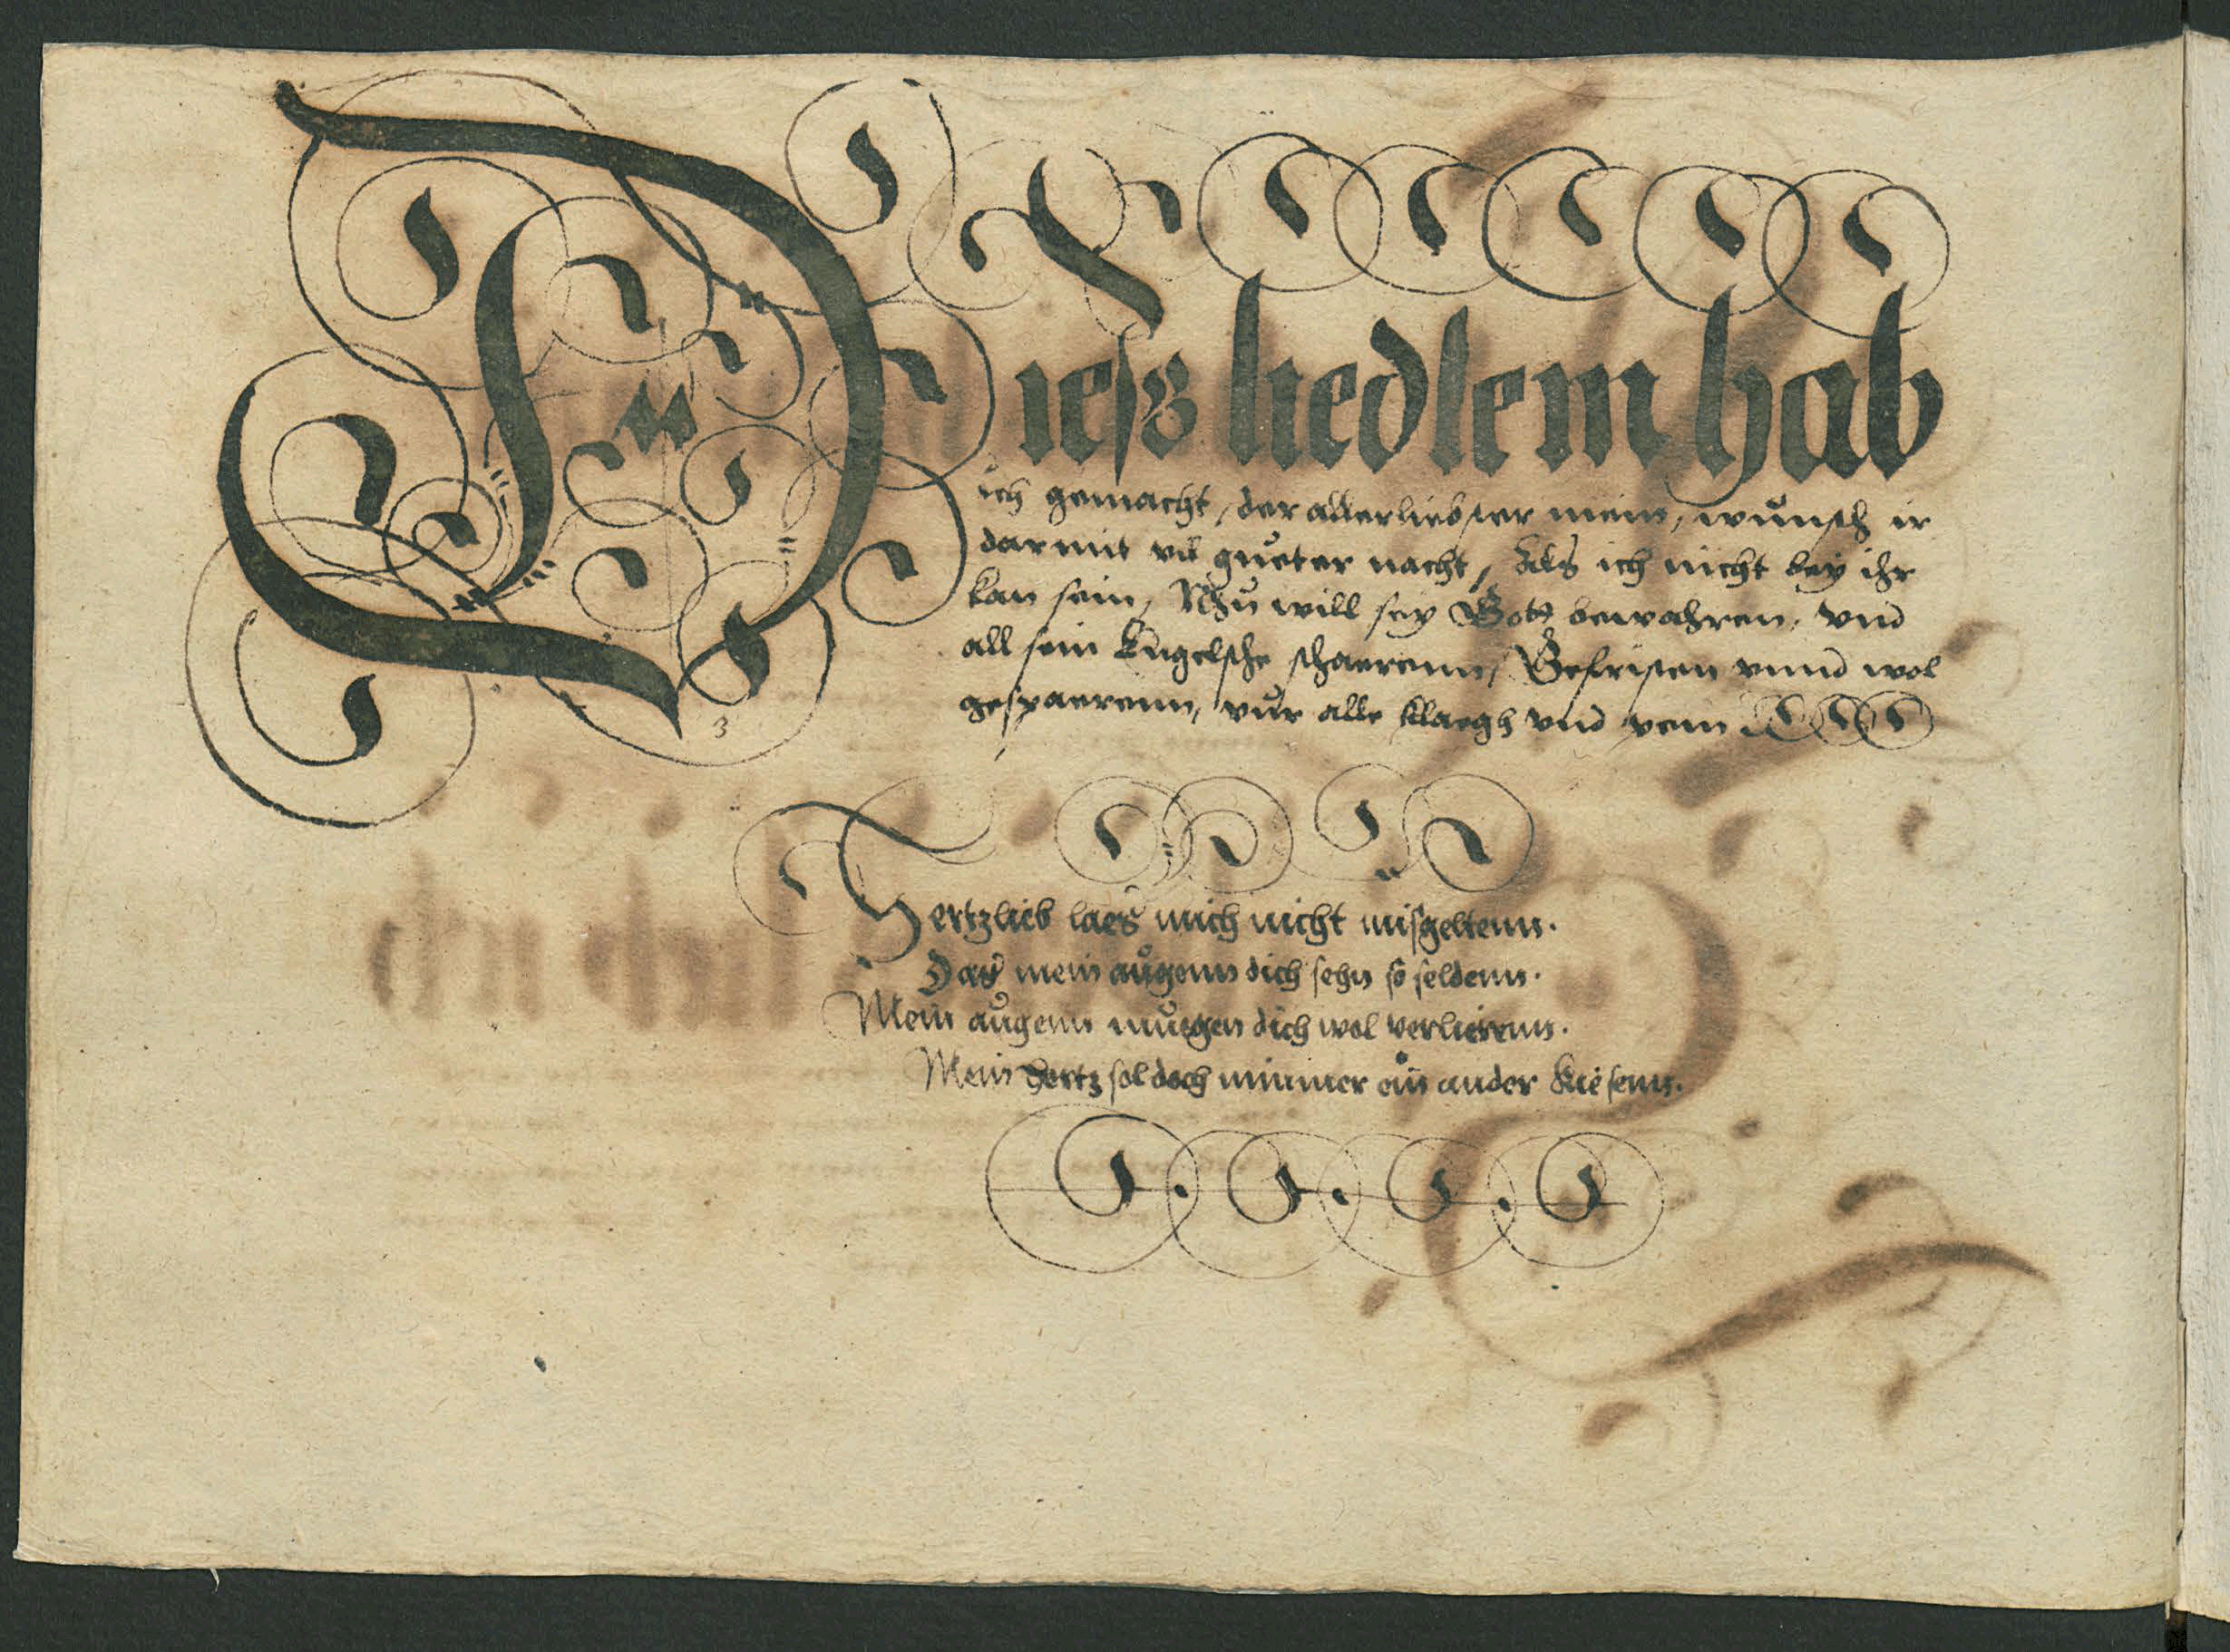 Diess liedlein hab
ich gemacht, der allerliebster mein, wünsch ir
darmit vil güeter nacht, Als ich nicht bey ihr
kan sein, Nhü will sey Gott bewahren, vnd
all sein Engelsche schaerenn, Gefristen vnnd wol
gespaerenn, vür alle klaegh vnd pein
3
Hertzlieb laes mich nicht misgeltenn.
Das mein augenn dich sehn so seldenn.
Mein augenn muegen dich wol verlierenn.
Mein hertz sol doch nimmer ein ander kiesenn.